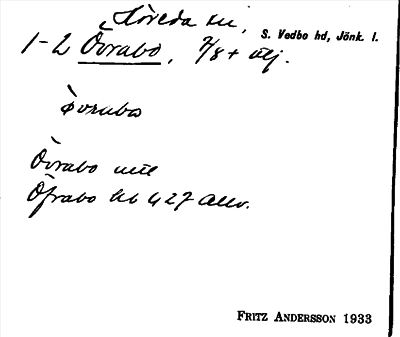 Höreda sn, S. Vedbo hd, Jönk. l.
1-2 Övrabo, 7/8 + älj.
òvrabo
Övrabo
Öfrabo Hb 427 Allv.
FRITZ ANDERSSON 1933